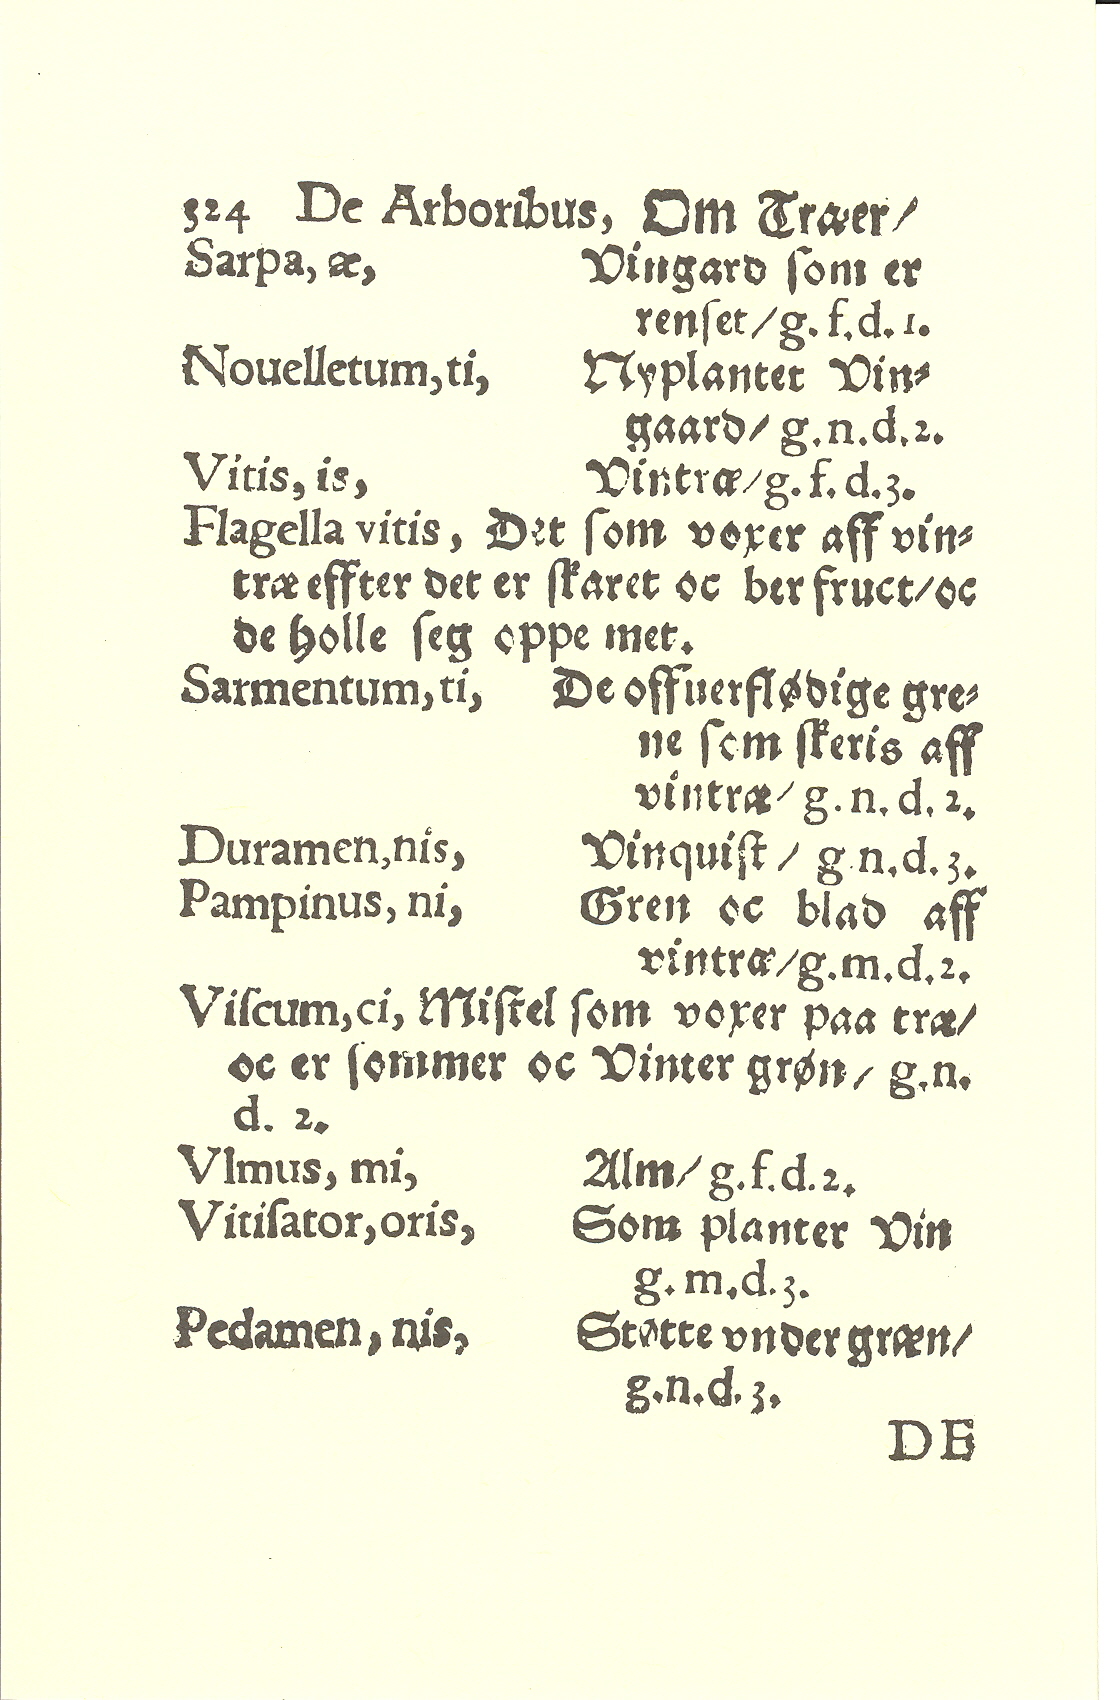 324 De Arboribus, Om Træer/
Sarpa, æ, Vingard ſom er
renſet/g. f. d. 1.
Nouelletum, ti, Nyplantet Vin⸗
gaard/ g. n. d. 2.
Vitis, is, Vintræ/g. f. d. 3.
Flagella vitis, Det ſom voxer aff vin⸗
træ effter det er ſkaret oc ber fruct/oc
de holle ſeg oppe met.
Sarmentum, ti, De offuerflødige gre⸗
ne ſom ſkeris aff
vintræ/ g. n. d. 2.
Duramen, nis, Vinquiſt / g. n. d. 3.
Pampinus, ni, Gren oc blad aff
vintræ/g. m. d. 2.
Viſcum, ci, Miſtel ſom voxer paa træ/
oc er ſommer oc Vinter grøn/ g. n.
d. 2.
Vlmus, mi, Alm/ g. f. d. 2.
Vitiſator, oris, Som planter Vin
g. m. d. 3.
Pedamen, nis, Støtte vnder græn/
g. n. d. 3.
DE